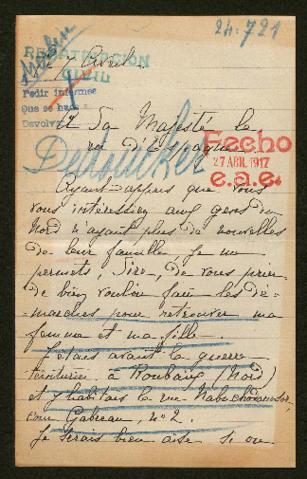 24.721
Le 7 Avril
CIVIL
Pedir informes
Que se haga
Devolver
A Sa Majesté le
roi d'Espagne
Fecho
27 ABR. 1917
e.a.e.
Ayant appris que vous
vous intéressiez aux gens du
Nord n'ayant plus de nouvelles
de leur famille, je me
permets, Sire, de vous prier
de bien vouloir faire les dé-
marches pour retrouver ma
femme et ma fille
J'étais avant la guerre
teinturier à Roubaix (Nord)
et j'habitais la rue Nabuchodonosor,
cour Gabreau, 4-2.
Je serais bien aise si on